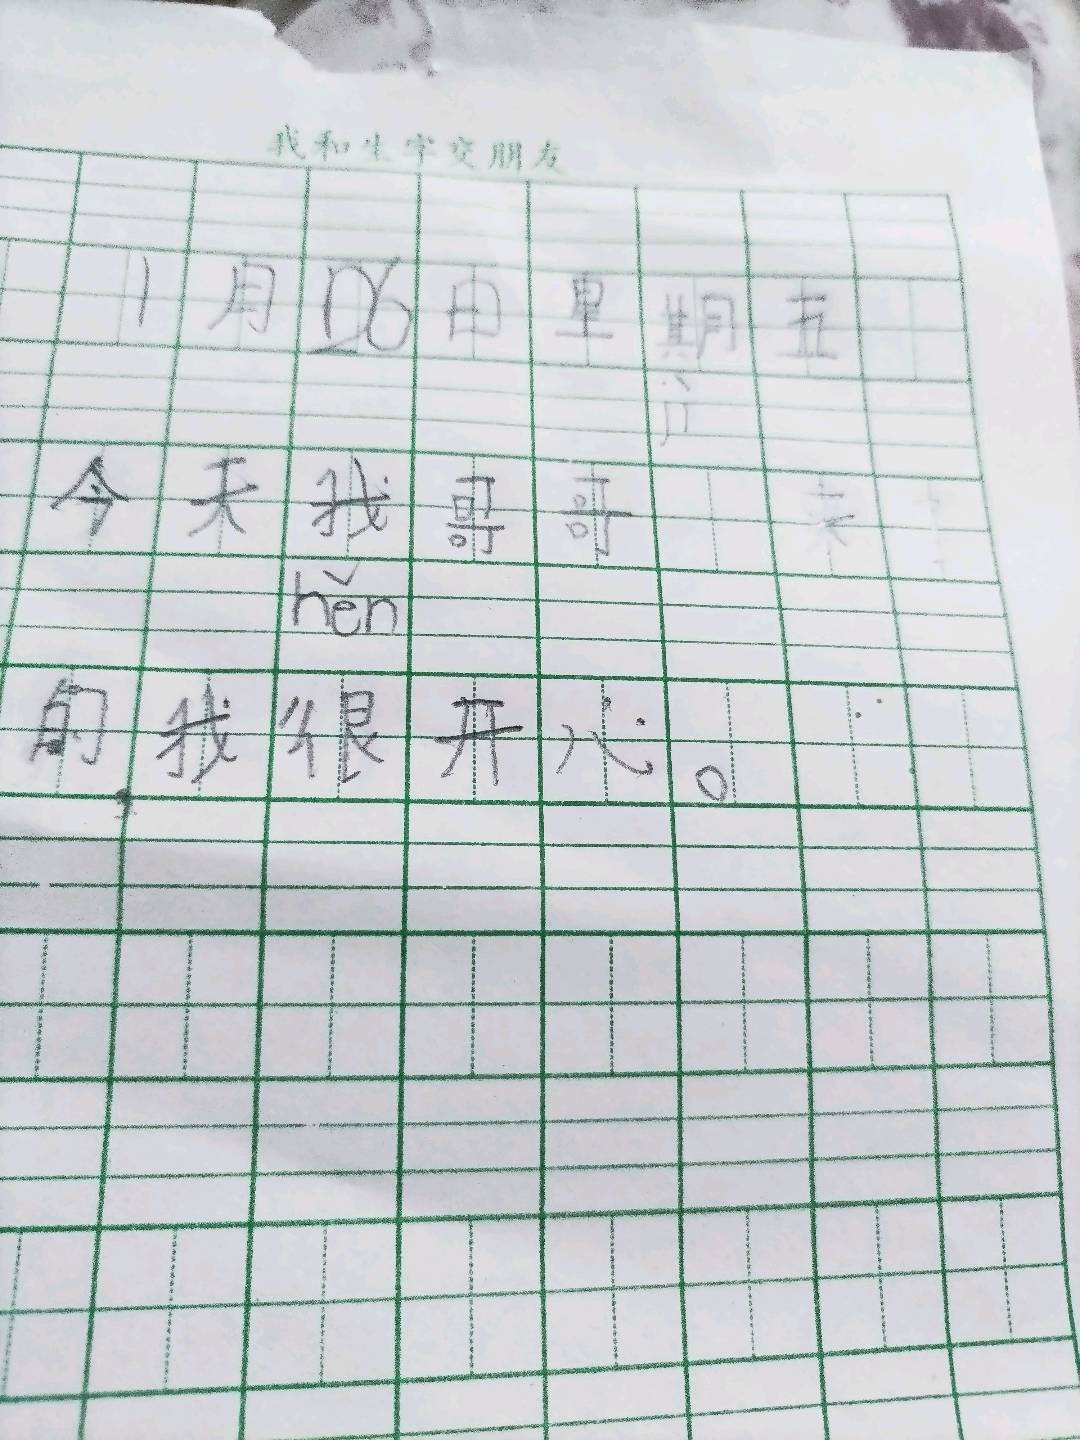 我和生字交朋友
1月26日星期五
今天我哥哥 来
hěn
的我很开心。